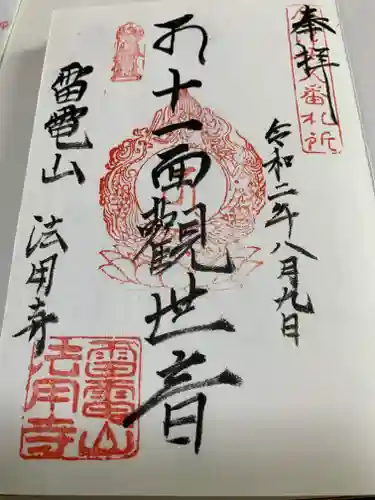 奉拝
番札所
令和二年八月九日
十一面觀世音
雷電山
法用寺
雷電山
法用寺